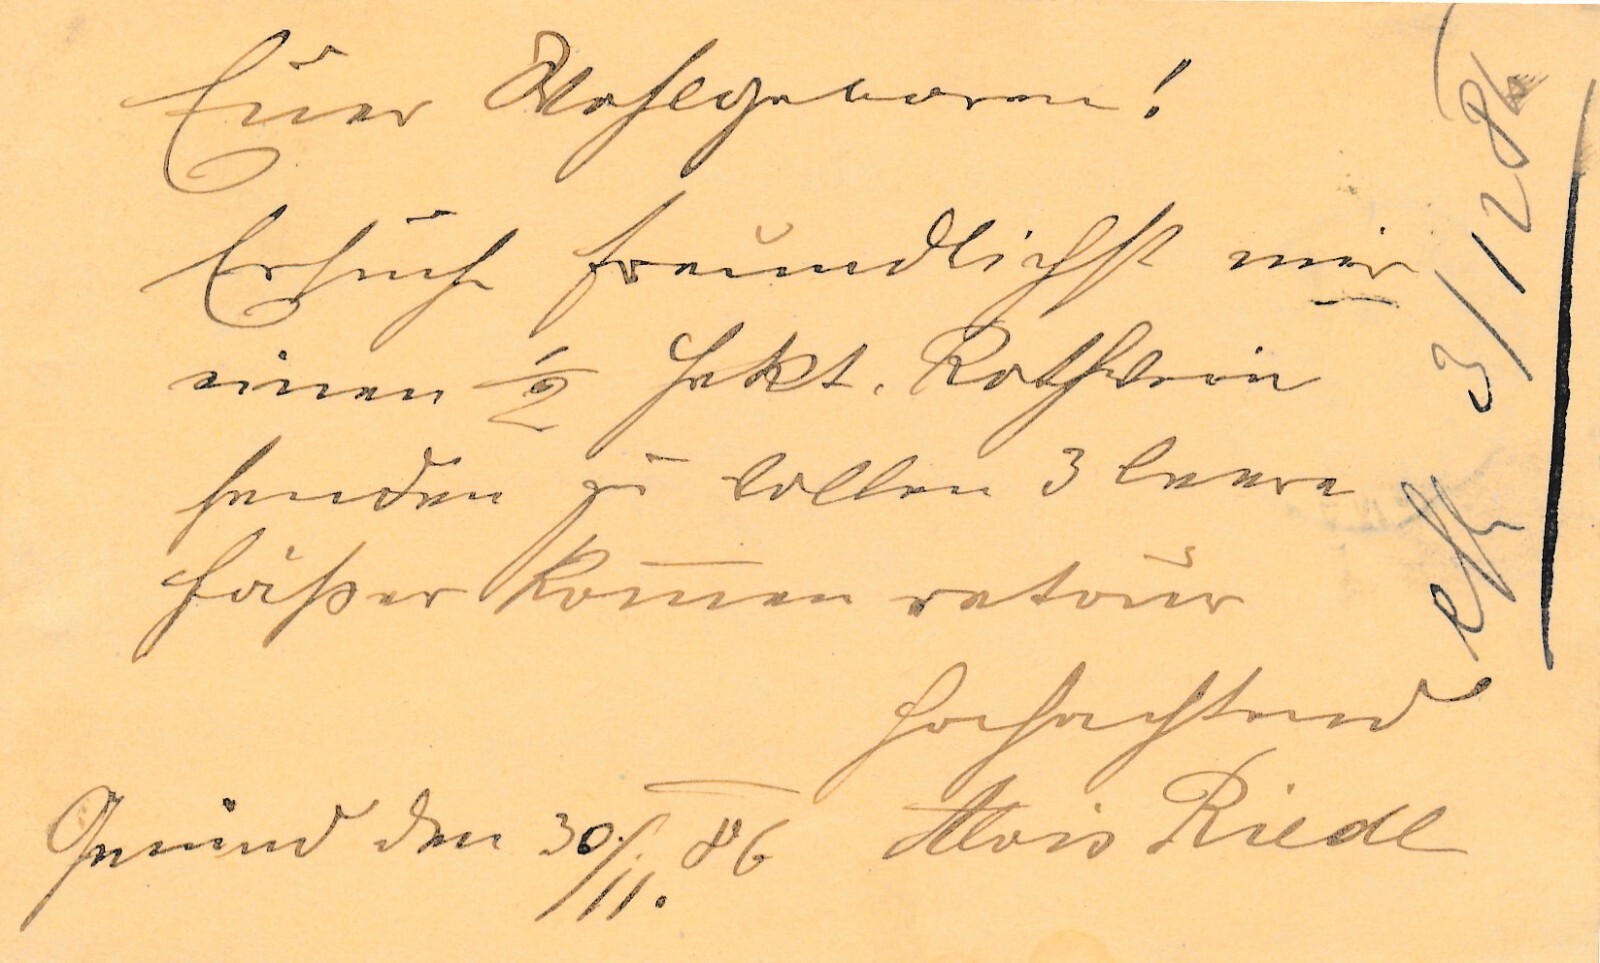 Euer Wohlgeboren!
Ersuche freundlichst mir
einen 1/2 Hekt. Rothwein
senden zu wollen 3 leere
Fäßer kommen retour
Hochachtend
Gmünd den 30/11. 86 Alois Riedl
3/12 86